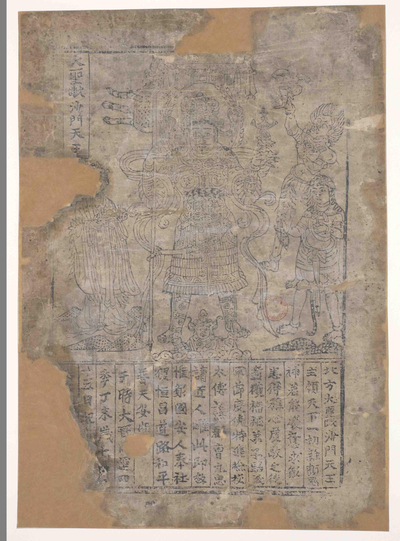 大聖毗沙門天王
北方大聖毗沙門天王
主領天下一切雜類鬼
神若能發意求願
悉得稱心虔敬之徒
盡獲福祐弟子歸義
軍節度使特進檢校
太傅譙郡曹元忠
請匠人雕此印板
惟願國安人泰社
稷恒昌道路和平
普天安樂
于時大晉開運四
年丁未歲
十五日記